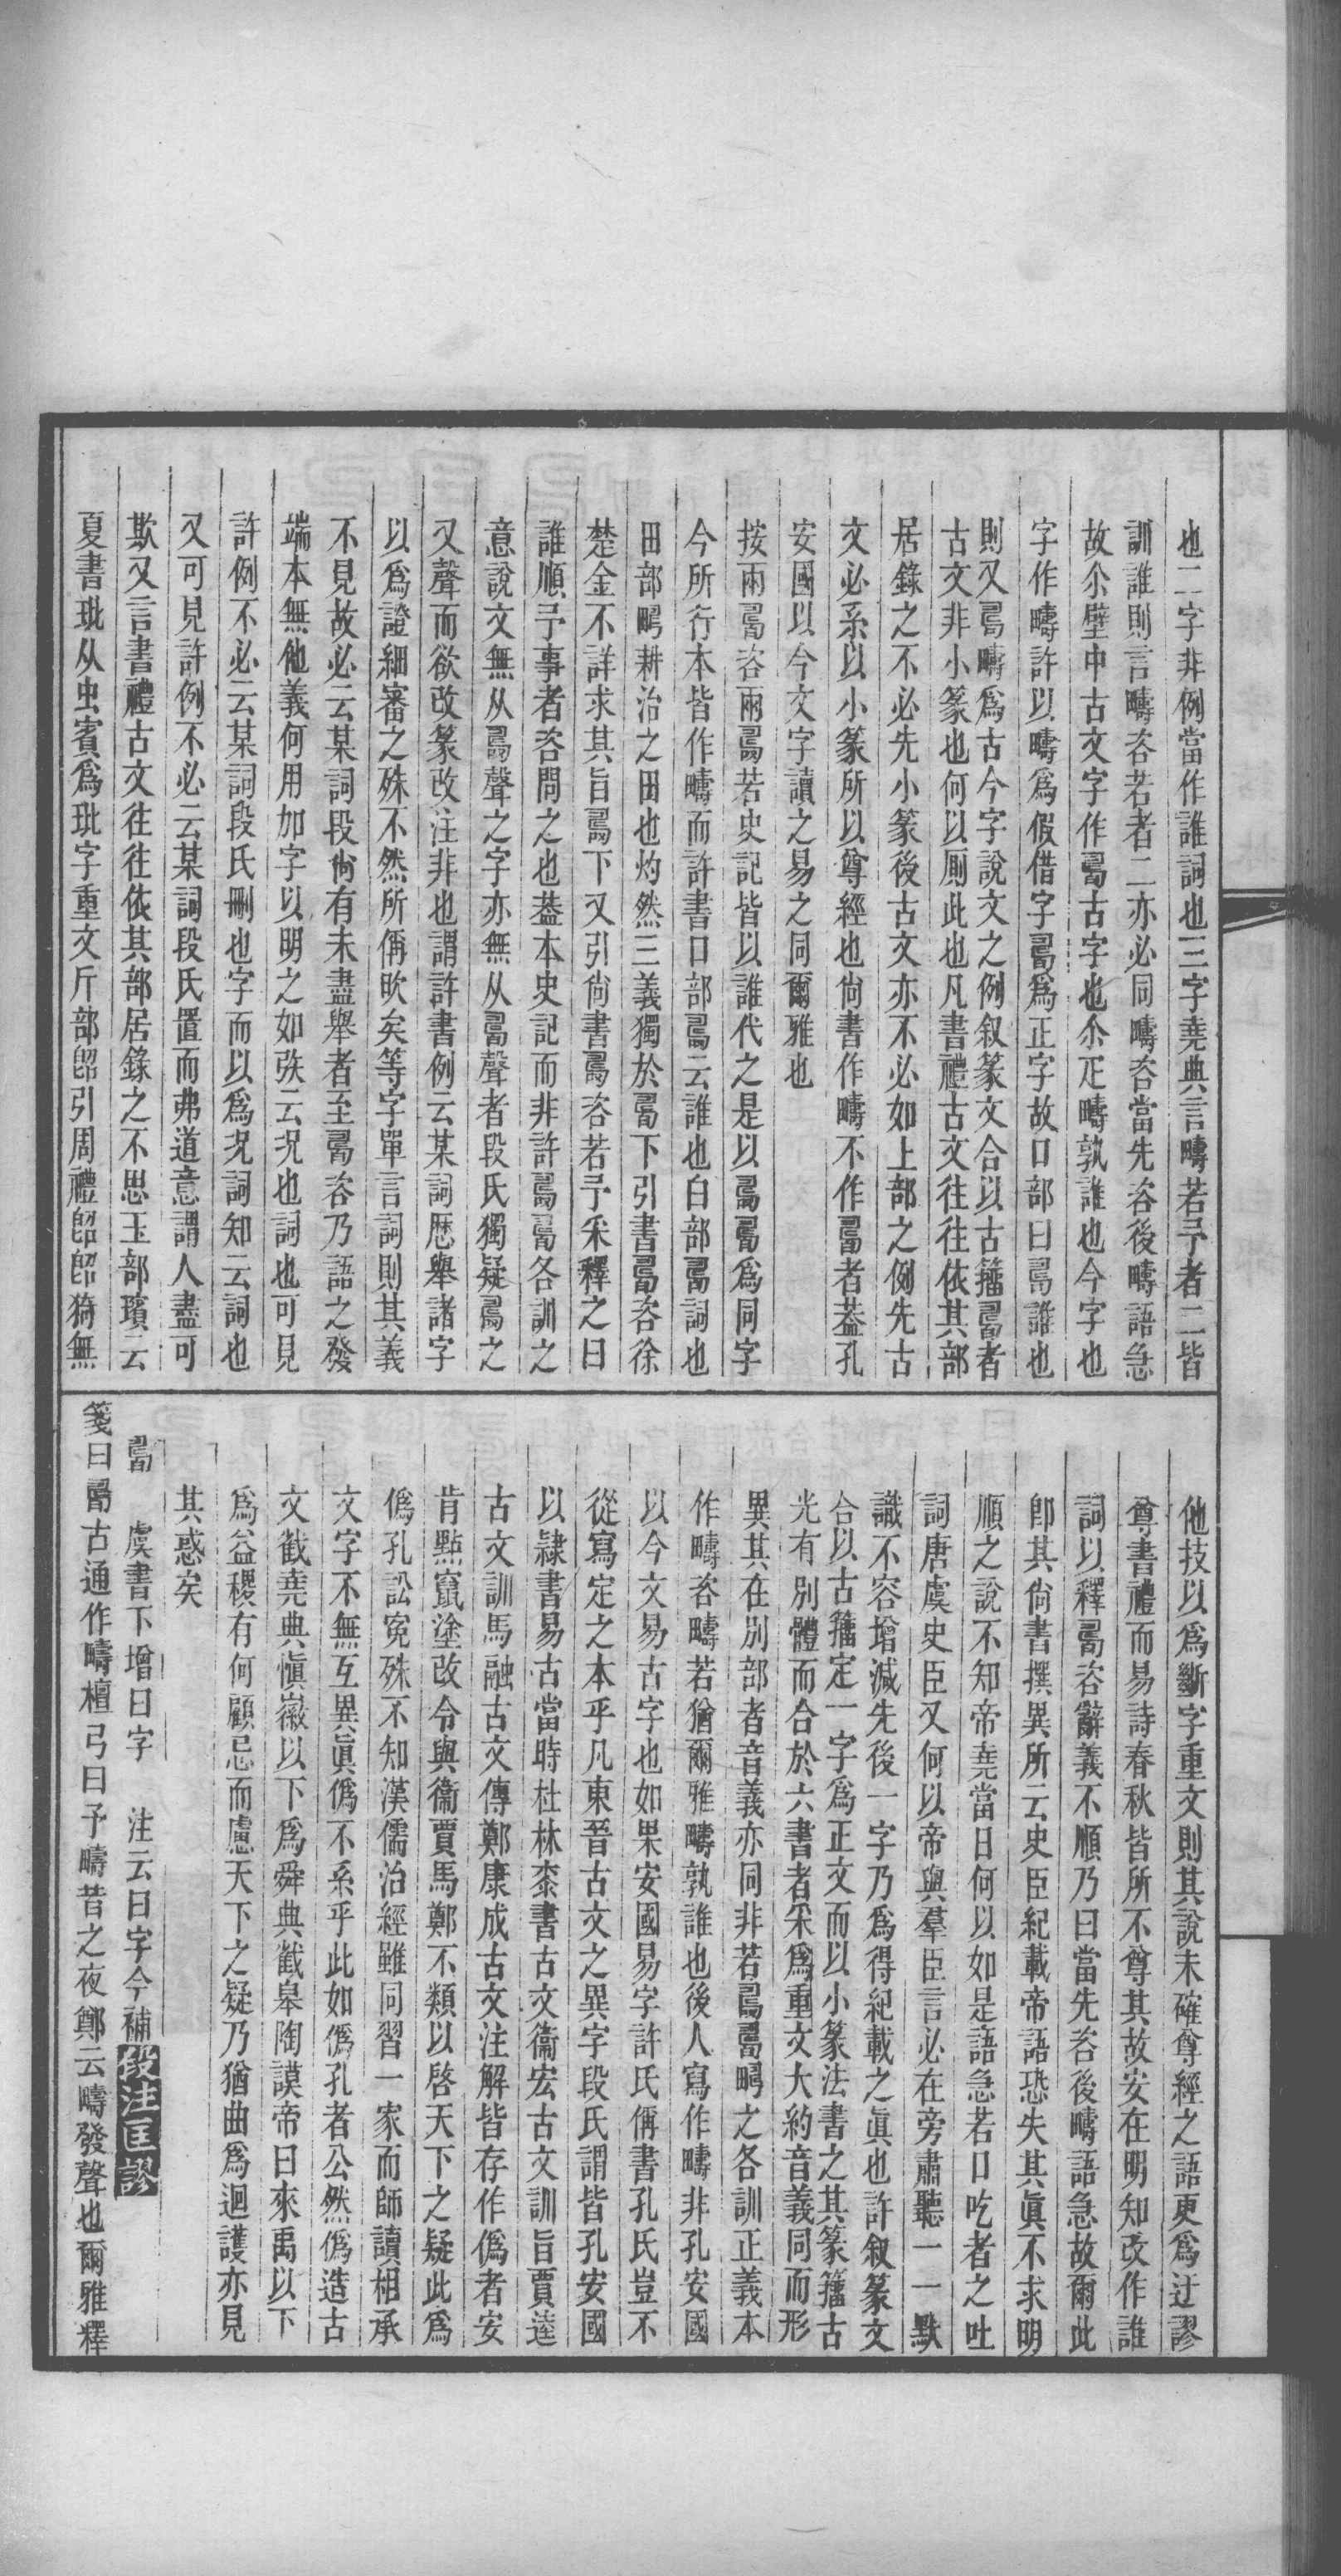 也二字非例當作誰詞也三字堯典言疇若予者二皆
訓誰則言疇咨若者二亦必同疇咨當先咨後疇語急
故尒壁中古文字作𠷎古字也尒疋疇孰誰也今字也
字作疇許以疇爲假借字𠷎爲正字故口部曰𠷎誰也
則又𠷎疇爲古今字說文之例叙篆文合以古籒𠷎者
古文非小篆也何以厠此也凡書禮古文往往依其部
居錄之不必先小篆後古文亦不必如上部之例先古
文必系以小篆所以尊經也尙書作疇不作𠷎者葢孔
安國以今文字讀之易之同爾雅也
按兩𠷎咨兩𠷎若史記皆以誰代之是以𠷎𠷎爲同字
今所行本皆作疇而許書口部𠷎云誰也白部𠷎詞也
田部𤲮耕治之田也灼然三義獨於𠷎下引書𠷎咨徐
楚金不詳求其旨𠷎下又引尙書𠷎咨若予采釋之曰
誰順予事者咨問之也葢本史記而非許𠷎𠷎各訓之
意說文無从𠷎聲之字亦無从𠷎聲者段氏獨疑𠷎之
又聲而欲改篆改注非也謂許書例云某詞歴舉諸字
以爲證細審之殊不然所偁欥矣等字單言詞則其義
不見故必云某詞段尙有未盡舉者至𠷎咨乃語之發
端本無他義何用加字以明之如矤云况也詞也可見
許例不必云某詞段氏刪也字而以爲况詞知云詞也
又可見許例不必云某詞段氏置而弗道意謂人盡可
欺又言書禮古文往往依其部居錄之不思玉部璸云
夏書玭从虫賓爲玭字重文斤部𠸿引周禮𠸿𠸿猗無
他技以爲斷字重文則其說未確尊經之語更爲迂謬
尊書禮而易詩春秋皆所不尊其故安在明知改作誰
詞以釋𠷎咨辭義不順乃曰當先咨後疇語急故爾此
卽其尙書撰異所云史臣紀載帝語恐失其眞不求明
順之說不知帝堯當日何以如是語急若口吃者之吐
詞唐虞史臣又何以帝與羣臣言必在旁肅聽一一默
識不容增減先後一字乃爲得紀載之眞也許叙篆文
合以古籒定一字爲正文而以小篆法書之其篆籒古
光有別體而合於六書者采爲重文大約音義同而形
異其在別部者音義亦同非若𠷎𠷎𤲮之各訓正義本
作疇咨疇若猶爾雅疇孰誰也後人寫作疇非孔安國
以今文易古字也如果安國易字許氏偁書孔氏豈不
從寫定之本乎凡東晉古文之異字段氏謂皆孔安國
以隷書易古當時杜林桼書古文衞宏古文訓旨賈逵
古文訓馬融古文傳鄭康成古文注解皆存作僞者安
肯㸃竄塗改令與衞賈馬鄭不類以啓天下之疑此爲
僞孔訟寃殊不知漢儒治經雖同習一家而師讀相承
文字不無互異眞僞不系乎此如僞孔者公然僞造古
文截堯典愼徽以下爲舜典截皋陶謨帝曰來禹以下
爲益稷有何顧忌而慮天下之疑乃猶曲爲迴護亦見
其惑矣
𠷎　虞書下增曰字　注云曰字今補段注匡謬
箋曰𠷎古通作疇檀弓曰予疇昔之夜鄭云疇發聲也爾雅釋